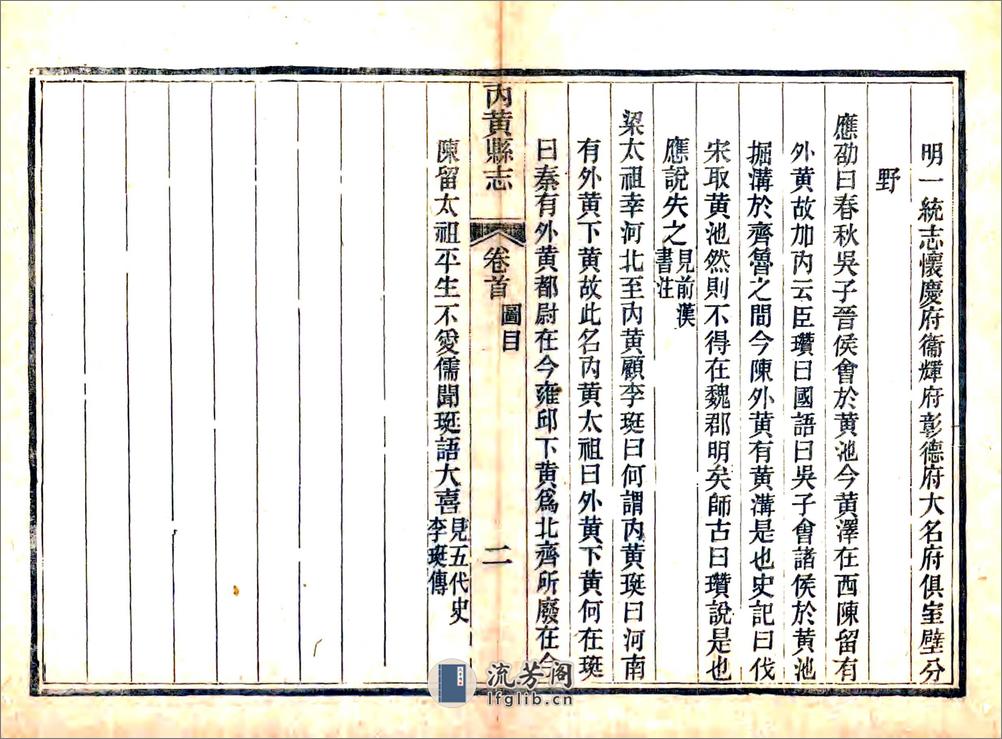 明一統志懷慶府衞輝府彰德府大名府俱室壁分
野
應劭曰春秋吳子晉侯會於黃池今黃澤在西陳留有
外黃故加內云臣瓚曰國語曰吳子會諸侯於黃池
掘溝於齊魯之間今陳外黃有黃溝是也史記曰伐
宋取黃池然則不得在魏郡明矣師古曰瓚說是也
應說失之見前漢
書注
梁太祖幸河北至內黃顧李珽曰何謂內黃珽曰河南
有外黃下黃故此名內黃太祖曰外黃下黃何在珽
曰秦有外黃都尉在今雍邱下黃爲北齊所廢在今
內黃縣志
卷首
圖目
二
陳留太祖平生不愛儒聞珽語大喜見五代史
李珽傳
流芳閣
lfglib.cn